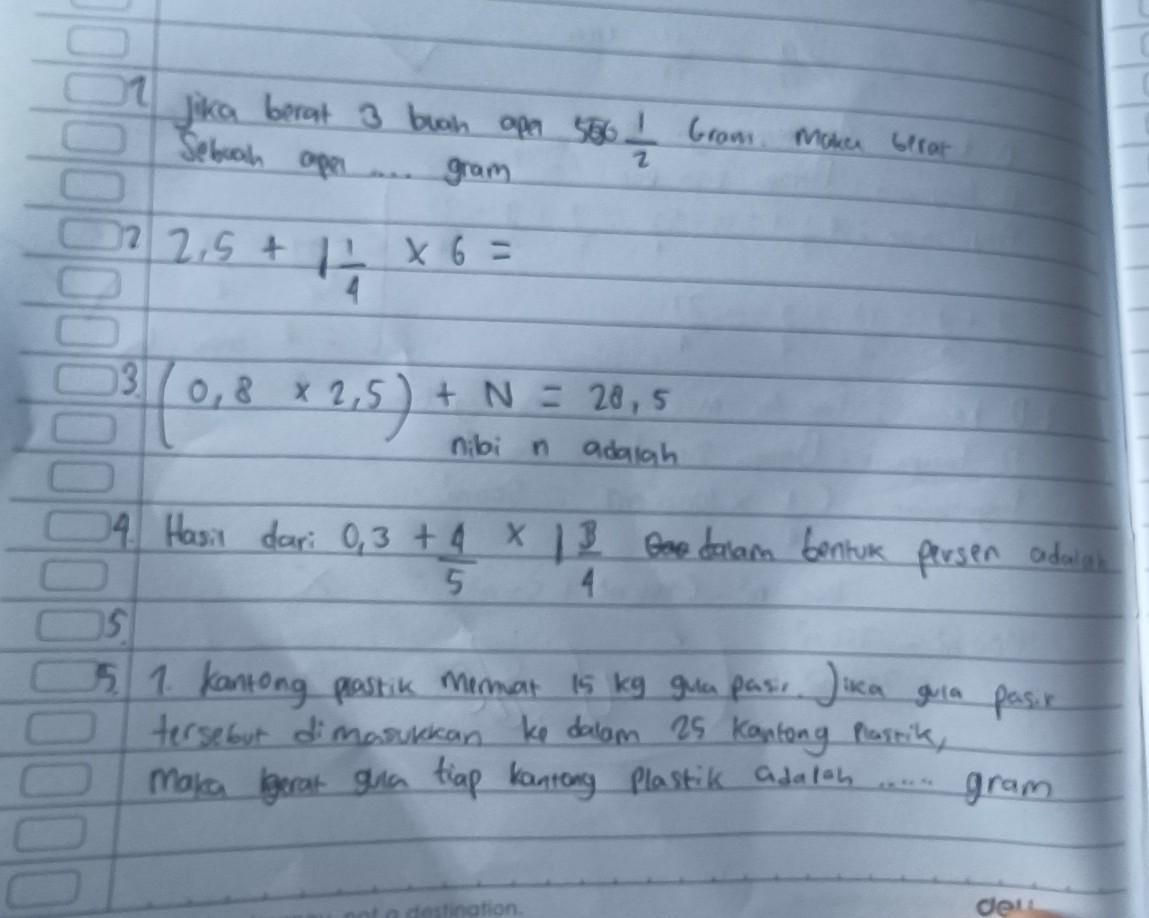 1 Jika berat 3 buah apel 556 1/2 Gram. Maka berat
Sebuah apel .... gram
2 2,5 + 1 1/4 x 6 =
3. (0,8 x 2,5) + N = 28,5
nilai n adalah
4. Hasil dari 0,3 + 4/5 x 1 3/4 dalam bentuk persen adalah
5.
5. 1. kantong plastik memuat 15 kg gula pasir. Jika gula pasir
tersebut dimasukkan ke dalam 25 kantong Plastik,
Maka berat gula tiap kantong Plastik adalah ..... gram
not a destination.
deli